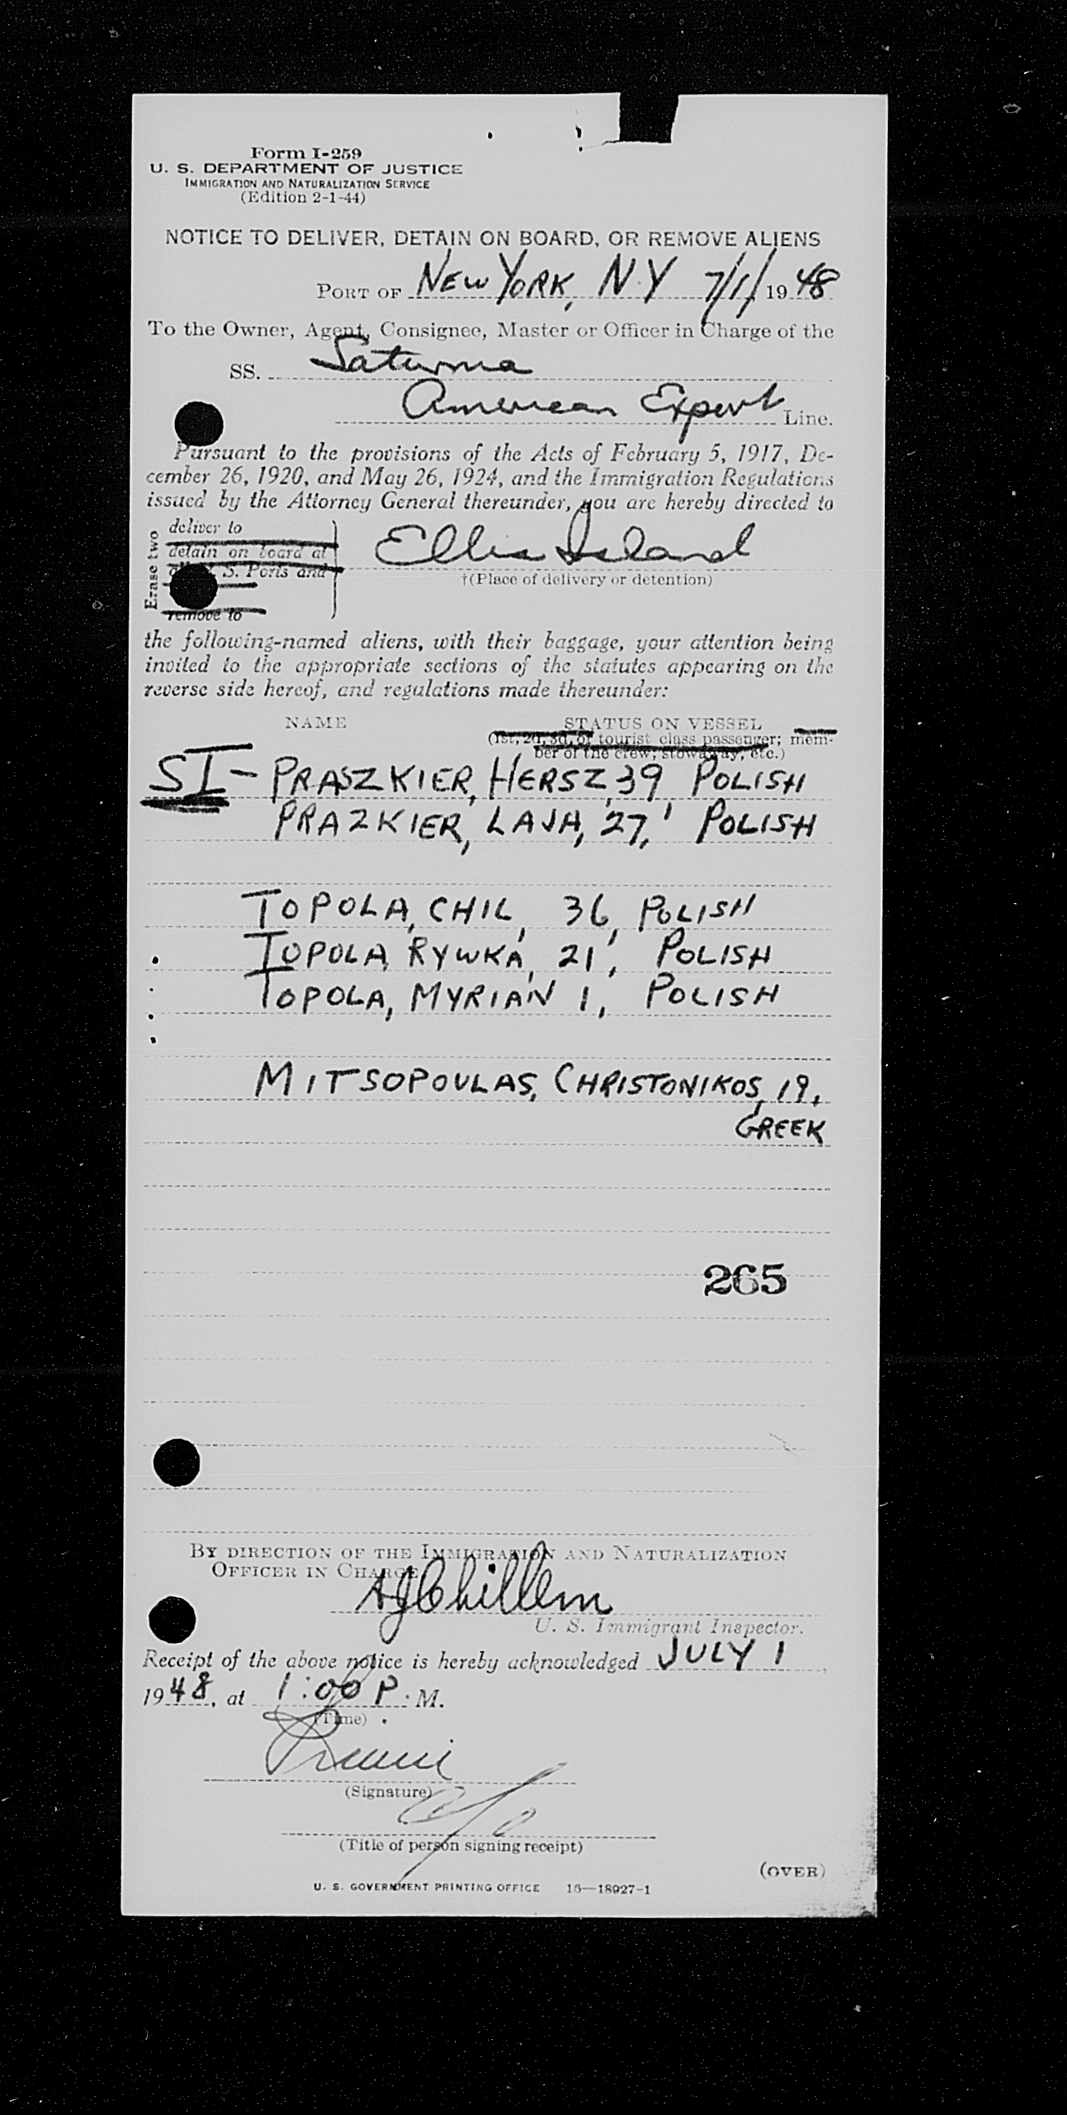 Form I-259
U. S. DEPARTMENT OF JUSTICE
IMMIGRATION AND NATURALIZATION SERVICE
(Edition 2-1-44)
NOTICE TO DELIVER, DETAIN ON BOARD, OR REMOVE ALIENS
PORT OF NEW YORK, N.Y 7/1/1948
To the Owner, Agent, Consignee, Master or Officer in Charge of the
SS. Saturnia
American Export Line.
Pursuant to the provisions of the Acts of February 5, 1917, De-
cember 26, 1920, and May 26, 1924, and the Immigration Regulations
issued by the Attorney General thereunder, you are hereby directed to
Erase two
deliver to
detain on board at
S. Ports and
remove to
Ellis Island
†(Place of delivery or detention)
the following-named aliens, with their baggage, your attention being
invited to the appropriate sections of the statutes appearing on the
reverse side hereof, and regulations made thereunder:
NAME STATUS ON VESSEL
(1st, 2d, 3d, or tourist class passenger; mem-
ber of the crew, stowaway, etc.)
SI - PRASZKIER, HERSZ, 39, POLISH
PRAZKIER, LAJA, 27, POLISH
TOPOLA, CHIL, 36, POLISH
TOPOLA, RYWKA, 21, POLISH
TOPOLA, MYRIAN 1, POLISH
MITSOPOULAS, CHRISTONIKOS, 19,
GREEK
265
BY DIRECTION OF THE IMMIGRATION AND NATURALIZATION
OFFICER IN CHARGE
U. S. Immigrant Inspector.
Receipt of the above notice is hereby acknowledged JULY 1
1948, at 1:00 P. M.
(Time)
(Signature)
(Title of person signing receipt)
(OVER)
U. S. GOVERNMENT PRINTING OFFICE 16—18927-1